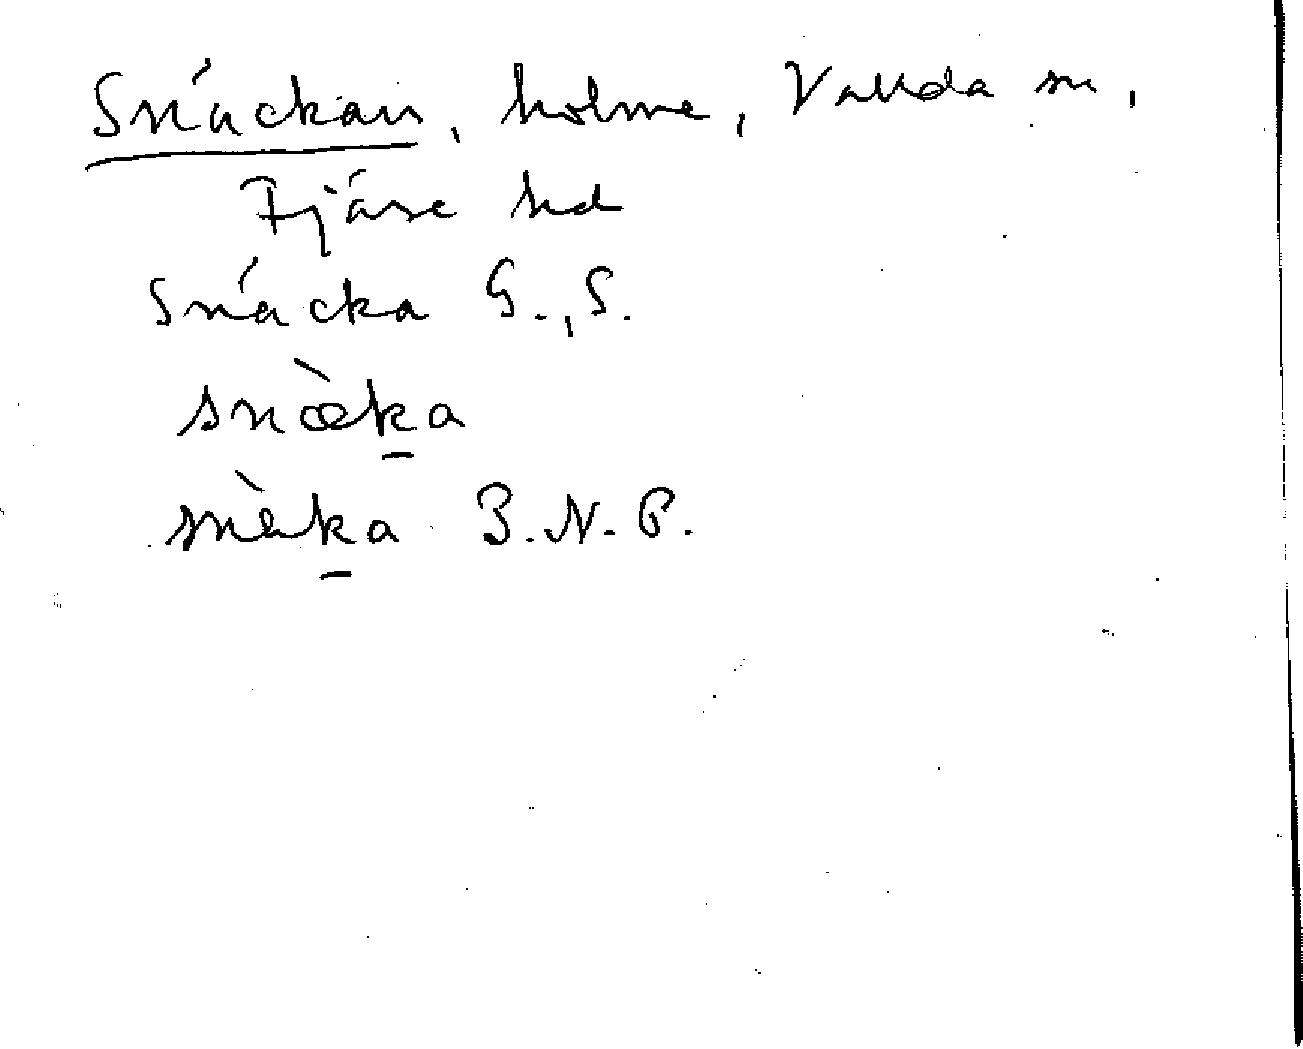 Snäckan, holme, Vallda sn,
Fjäre hd
Snäcka G., S.
snæ̀ka
snäka P.N.P.